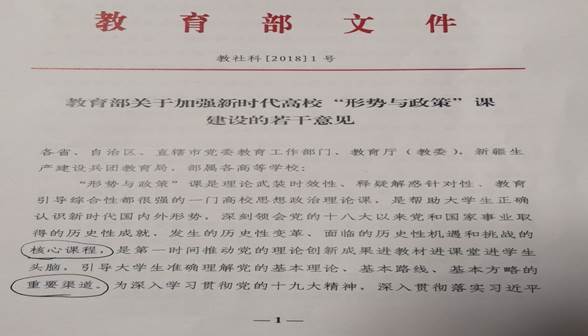 教育部文件
教社科[2018]1号
教育部关于加强新时代高校“形势与政策”课
建设的若干意见
各省、自治区、直辖市党委教育工作部门、教育厅（教委），新疆生
产建设兵团教育局，部属各高等学校：
“形势与政策”课是理论武装时效性、释疑解惑针对性、教育
引导综合性都很强的一门高校思想政治理论课，是帮助大学生正确
认识新时代国内外形势，深刻领会党的十八大以来党和国家事业取
得的历史性成就、发生的历史性变革、面临的历史性机遇和挑战的
核心课程，是第一时间推动党的理论创新成果进教材进课堂进学生
头脑，引导大学生准确理解党的基本理论、基本路线、基本方略的
重要渠道。为深入学习贯彻党的十九大精神，深入贯彻落实习近平
—1—